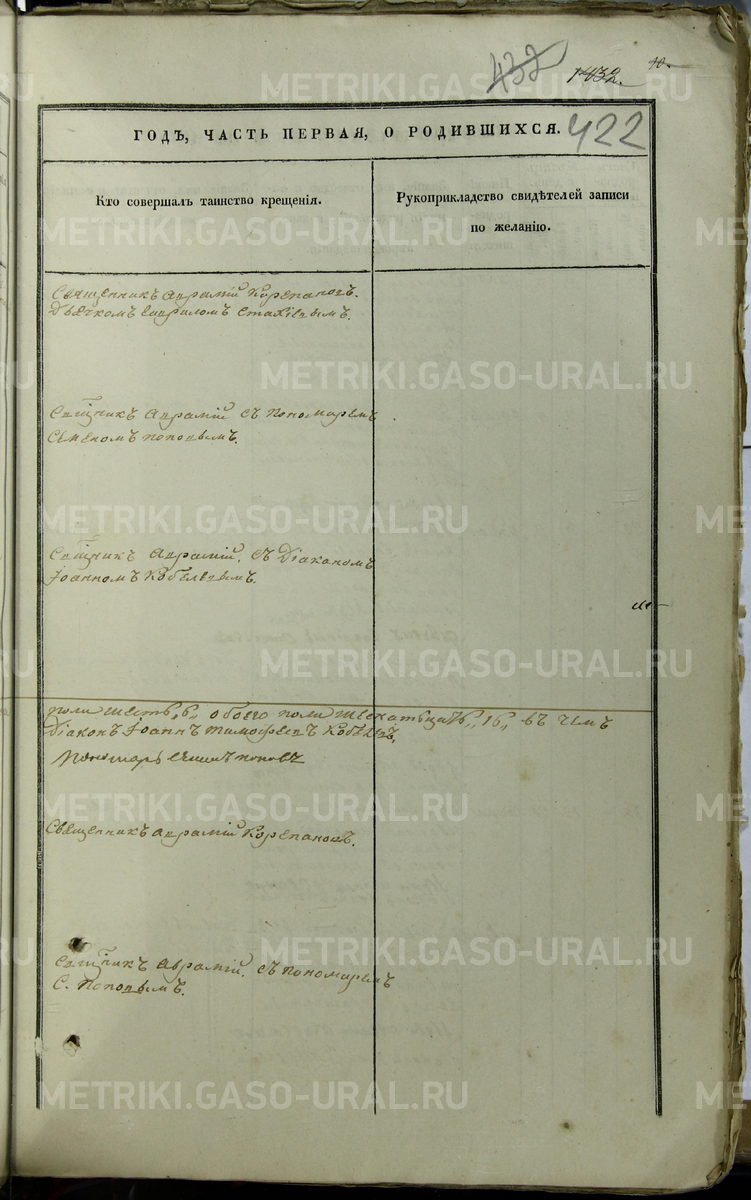 432
1432.
10.
ГОДЪ, ЧАСТЬ ПЕРВАЯ, О РОДИВШИХСЯ.
422
Кто совершалъ таинство крещенія.
Рукоприкладство свидѣтелей записи
по желанію.
Священникъ Аврамій Корепановъ.
Дьячкомъ Гавриломъ Стахіевымъ.
Сващникъ Аврамій съ пономаремъ
Семеномъ Поповымъ.
Сващникъ Аврамій, съ Діакономъ
Іоанномъ Кобелевымъ.
пола шесть „6„ обоего пола шеснатьцать „16„ въ чемъ
Діаконъ Іоаннъ Тимофеевъ Кобелевъ,
Пономарь Симеонъ Поповъ
Священникъ Аврамій Корепановъ.
Сващникъ Аврамій, съ пономаремъ
С. Поповымъ.
METRIKI.GASO-URAL.RU